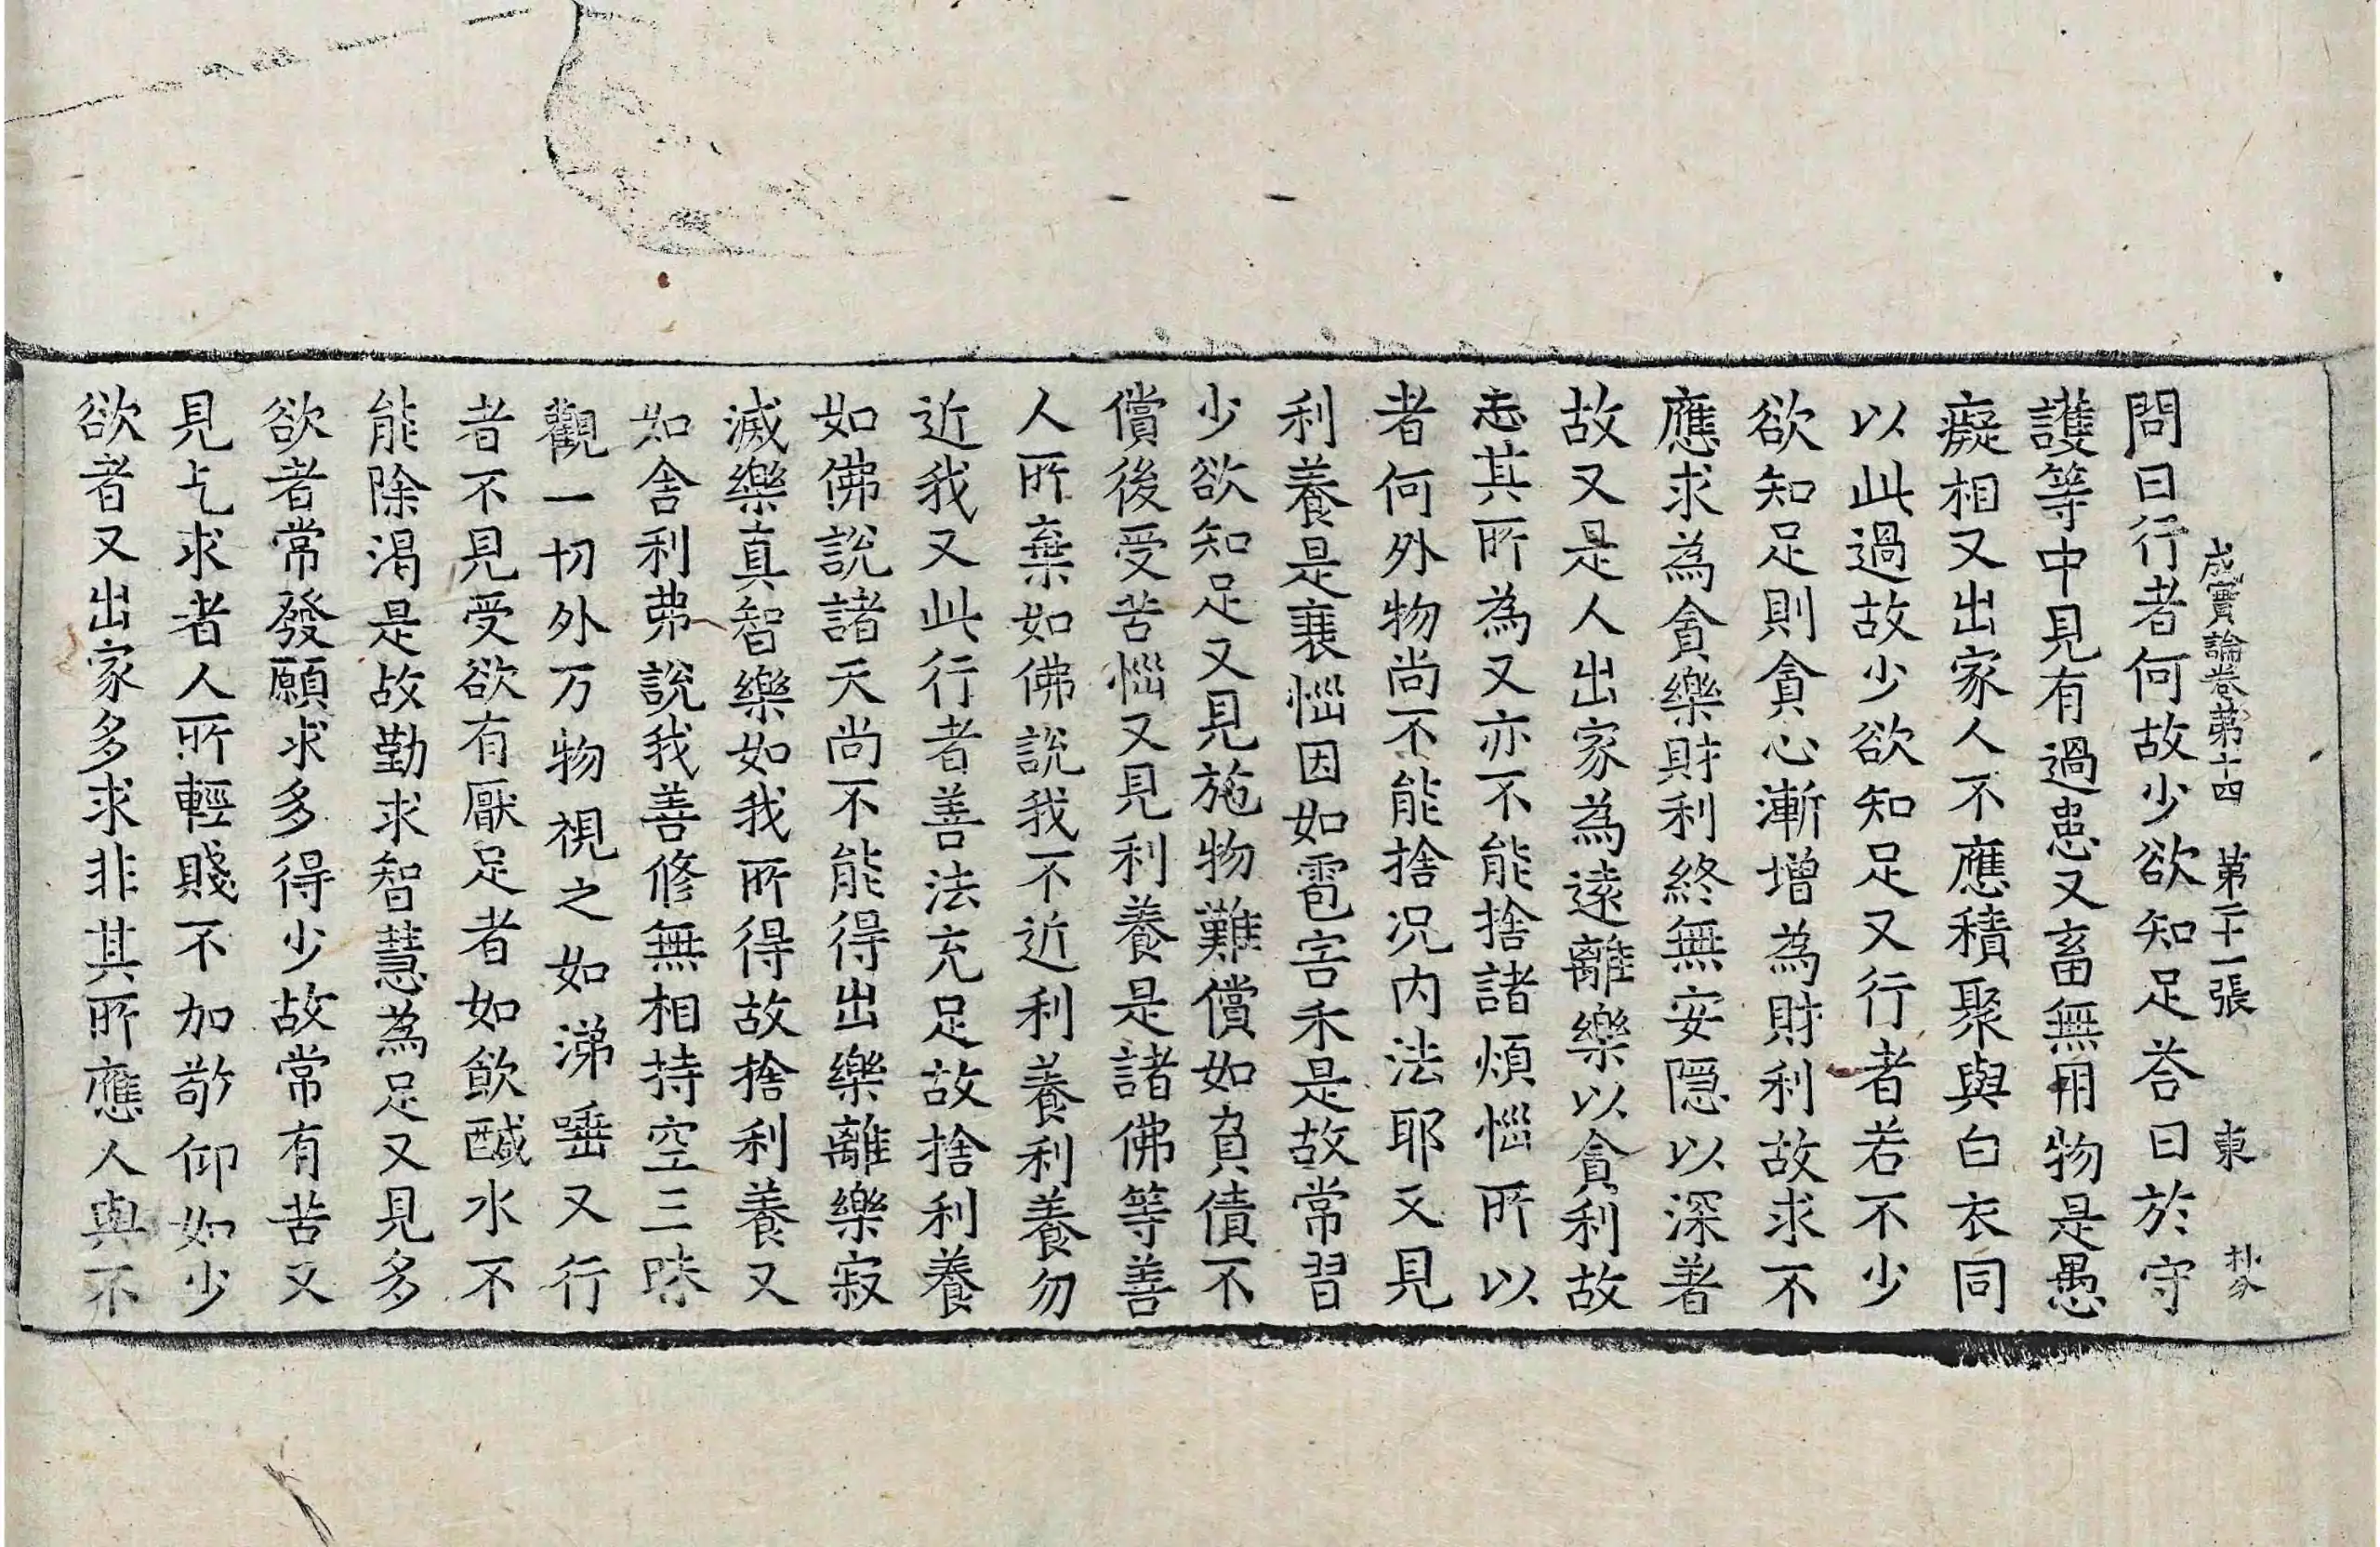 成實論卷第十四 第二十一張 東
問曰行者何故少欲知足荅曰於守
護等中見有過患又畜無用物是愚
癡相又出家人不應積聚與白衣同
以此過故少欲知足又行者若不少
欲知足則貪心漸增為財利故求不
應求為貪樂財利終無安隱以深著
故又是人出家為遠離樂以貪利故
忘其所為又亦不能捨諸煩惱所以
者何外物尚不能捨况內法耶又見
利養是衰惱因如雹害禾是故常習
少欲知足又見施物難償如負債不
償後受苦惱又見利養是諸佛等善
人所棄如佛說我不近利養利養勿
近我又此行者善法充足故捨利養
如佛說諸天尚不能得出樂離樂寂
滅樂真智樂如我所得故捨利養又
如舍利弗說我善修無相持空三昧
觀一切外万物視之如涕唾又行
者不見受欲有厭足者如飲醎水不
能除渴是故勤求智慧為足又見多
欲者常發願求多得少故常有苦又
見乞求者人所輕賤不加敬仰如少
欲者又出家多求非其所應人與不